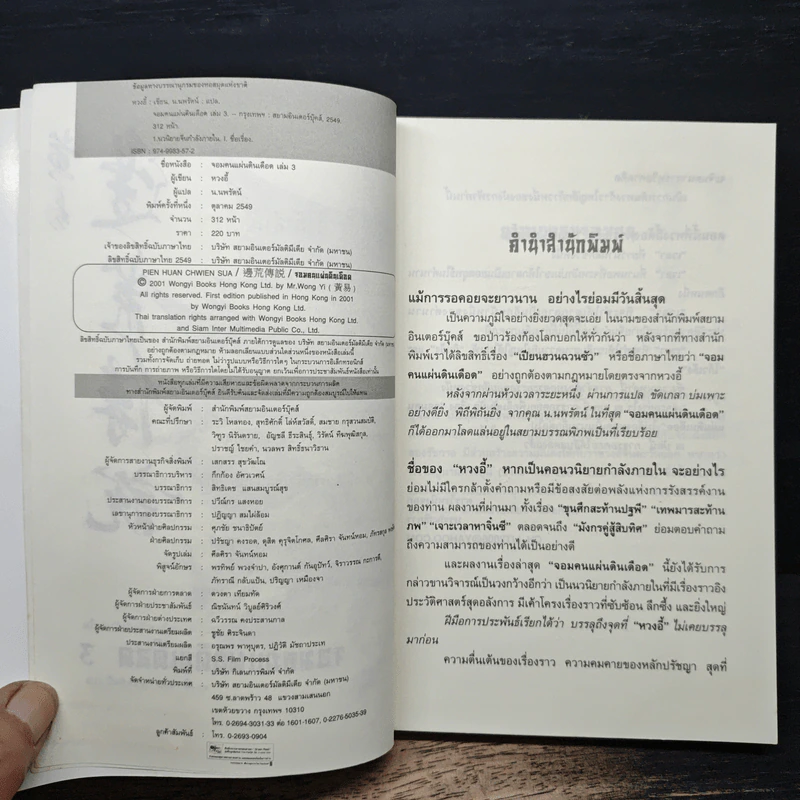 ข้อมูลทางบรรณานุกรมของหอสมุดแห่งชาติ
หวงอี้ : เขียน, น.นพรัตน์ : แปล.
จอมคนแผ่นดินเดือด เล่ม 3. -- กรุงเทพฯ : สยามอินเตอร์บุ๊คส์, 2549.
312 หน้า.
1.นวนิยายจีนกำลังภายใน. I. ชื่อเรื่อง.
ISBN : 974-9983-57-2
ชื่อหนังสือ : จอมคนแผ่นดินเดือด เล่ม 3
ผู้เขียน : หวงอี้
ผู้แปล : น.นพรัตน์
พิมพ์ครั้งที่หนึ่ง : ตุลาคม 2549
จำนวน : 312 หน้า
ราคา : 220 บาท
เจ้าของลิขสิทธิ์ฉบับภาษาไทย : บริษัท สยามอินเตอร์มัลติมีเดีย จำกัด (มหาชน)
ลิขสิทธิ์ภาษาไทย 2549 : บริษัท สยามอินเตอร์มัลติมีเดีย จำกัด (มหาชน)
PIEN HUAN CHWIEN SUA / 邊荒傳說 / จอมคนแผ่นดินเดือด
© 2001 Wongyi Books Hong Kong Ltd. by Mr.Wong Yi ( 黃易 )
All rights reserved. First edition published in Hong Kong in 2001
by Wongyi Books Hong Kong Ltd.
Thai translation rights arranged with Wongyi Books Hong Kong Ltd.
and Siam Inter Multimedia Public Co., Ltd.
ลิขสิทธิ์ฉบับภาษาไทยเป็นของ สำนักพิมพ์สยามอินเตอร์บุ๊คส์ ภายใต้การดูแลของ บริษัท สยามอินเตอร์มัลติมีเดีย จำกัด (มหาชน)
อย่างถูกต้องตามกฎหมาย ห้ามลอกเลียนแบบส่วนใดส่วนหนึ่งของหนังสือเล่มนี้
รวมทั้งการจัดเก็บ ถ่ายทอด ไม่ว่ารูปแบบหรือวิธีการใดๆ ในกระบวนการอิเล็กทรอนิกส์
การบันทึก การถ่ายภาพ หรือวิธีการใดโดยไม่ได้รับอนุญาต ยกเว้นเพื่อการประชาสัมพันธ์หนังสือเท่านั้น
หนังสือทุกเล่มที่มีความเสียหายและข้อผิดพลาดจากกระบวนการผลิต
ทางสำนักพิมพ์สยามอินเตอร์บุ๊คส์ ยินดีรับคืนและจัดส่งเล่มที่มีความถูกต้องสมบูรณ์ไปให้แทน
ผู้จัดพิมพ์ : สำนักพิมพ์สยามอินเตอร์บุ๊คส์
คณะที่ปรึกษา : ระวิ โหลทอง, สุทธิศักดิ์ โล่ห์สวัสดิ์, สมชาย กรุสวนสมบัติ,
วิฑูร นิรันตราย, อัญชลี ธีระสินธุ์, วิรัตน์ ทิพพุฒิกุล,
ปราชญ์ ไชยคำ, นวลพร สิทธิ์ธนาวิธาน
ผู้จัดการสายงานธุรกิจสิ่งพิมพ์ : เสกสรร สุขวัฒโณ
บรรณาธิการบริหาร : กึกก้อง อัศวเวคน์
บรรณาธิการ : สิทธิเดช แสนสมบูรณ์สุข
ประสานงานกองบรรณาธิการ : ปวีณ์กร แสงทอง
เลขานุการกองบรรณาธิการ : ปฏิญญา สมไม่ล้อม
หัวหน้าฝ่ายศิลปกรรม : ศุภชัย ชนาธิปัตย์
ฝ่ายศิลปกรรม : ปรัชญา คงรอด, ดุสิต คุรุจิตโกศล, ศีลศิรา จันทน์หอม,
จัดรูปเล่ม : ศีลศิรา จันทน์หอม
พิสูจน์อักษร : พรทิพย์ พวงจำปา, อังศุกานต์ กันอุปัทว์, จิราวรรณ กะการดี,
ภัทราณี กลับแป้น, ปริญญา เหมืองจา
ผู้จัดการฝ่ายการตลาด : ดวงตา เทียมทัด
ผู้จัดการฝ่ายประชาสัมพันธ์ : ณิชนันทน์ วิบูลย์ศิริวงศ์
ผู้จัดการฝ่ายต่างประเทศ : ฉวีวรรณ คงประสานกาล
ผู้จัดการฝ่ายประสานงานเตรียมผลิต : ชูชัย ศิระจินดา
ประสานงานเตรียมผลิต : อรุณพร พาหุบุตร, ปฏิวัติ มัชถาประเท
แยกสี : S.S. Film Process
พิมพ์ที่ : บริษัท กิเลนการพิมพ์ จำกัด
จัดจำหน่ายทั่วประเทศ : บริษัท สยามอินเตอร์มัลติมีเดีย จำกัด (มหาชน)
459 ซ.ลาดพร้าว 48 แขวงสามเสนนอก
เขตห้วยขวาง กรุงเทพฯ 10310
โทร. 0-2694-3031-33 ต่อ 1601-1607, 0-2276-5035-39
ลูกค้าสัมพันธ์ : โทร. 0-2693-0904
คำนำสำนักพิมพ์
แม้การรอคอยจะยาวนาน อย่างไรย่อมมีวันสิ้นสุด
เป็นความภูมิใจอย่างยิ่งยวดสุดจะเอ่ย ในนามของสำนักพิมพ์สยาม
อินเตอร์บุ๊คส์ ขอป่าวร้องก้องโลกบอกให้ทั่วกันว่า หลังจากที่ทางสำนัก
พิมพ์เราได้ลิขสิทธิ์เรื่อง “เปียนฮวนฉวนซัว” หรือชื่อภาษาไทยว่า “จอม
คนแผ่นดินเดือด” อย่างถูกต้องตามกฎหมายโดยตรงจากหวงอี้
หลังจากผ่านห้วงเวลาระยะหนึ่ง ผ่านการแปล ขัดเกลา บ่มเพาะ
อย่างดียิ่ง พิถีพิถันยิ่ง จากคุณ น.นพรัตน์ ในที่สุด “จอมคนแผ่นดินเดือด”
ก็ได้ออกมาโลดแล่นอยู่ในสยามบรรณพิภพเป็นที่เรียบร้อย
ชื่อของ “หวงอี้” หากเป็นคอนวนิยายกำลังภายใน จะอย่างไร
ย่อมไม่มีใครกล้าตั้งคำถามหรือมีข้อสงสัยต่อพลังแห่งการรังสรรค์งาน
ของท่าน ผลงานที่ผ่านมา ทั้งเรื่อง “ขุนศึกสะท้านปฐพี” “เทพมารสะท้าน
ภพ” “เจาะเวลาหาจิ๋นซี” ตลอดจนถึง “มังกรคู่สู้สิบทิศ” ย่อมตอบคำถาม
ถึงความสามารถของท่านได้เป็นอย่างดี
และผลงานเรื่องล่าสุด “จอมคนแผ่นดินเดือด” นี้ยังได้รับการ
กล่าวขานวิจารณ์เป็นวงกว้างอีกว่า เป็นนวนิยายกำลังภายในที่มีเรื่องราวอิง
ประวัติศาสตร์สุดอลังการ มีเค้าโครงเรื่องราวที่ซับซ้อน ลึกซึ้ง และยิ่งใหญ่
ฝีมือการประพันธ์เรียกได้ว่า บรรลุถึงจุดที่ “หวงอี้” ไม่เคยบรรลุ
มาก่อน
ความตื่นเต้นของเรื่องราว ความคมคายของหลักปรัชญา สุดที่